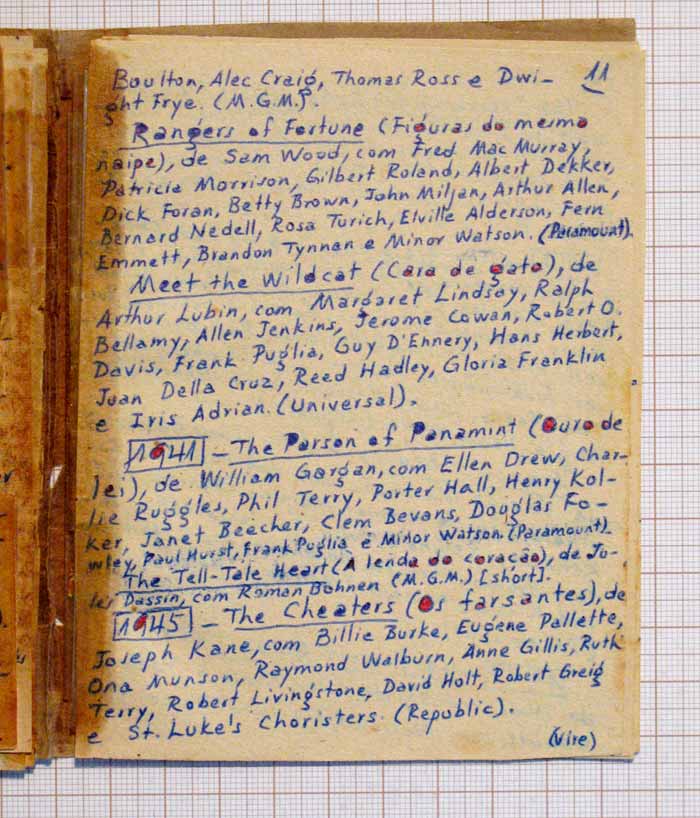 11
Boulton, Alec Craig, Thomas Ross e Dwi-
ght Frye. (M.G.M.).
Rangers of Fortune (Figuras do mesmo
naipe), de Sam Wood, com Fred Mac Murray,
Patricia Morrison, Gilbert Roland, Albert Dekker,
Dick Foran, Betty Brown, John Miljan, Arthur Allen,
Bernard Nedell, Rosa Turich, Elville Alderson, Fern
Emmett, Brandon Tynnan e Minor Watson. (Paramount).
Meet the Wildcat (Cara de gato), de
Arthur Lubin, com Margaret Lindsay, Ralph
Bellamy, Allen Jenkins, Jerome Cowan, Robert O.
Davis, Frank Puglia, Guy D'Ennery, Hans Herbert,
Juan Della Cruz, Reed Hadley, Gloria Franklin
e Iris Adrian. (Universal).
1941 - The Parson of Panamint (Ouro de
lei), de William Gargan, com Ellen Drew, Char-
lie Ruggles, Phil Terry, Porter Hall, Henry Kol-
ker, Janet Beecher, Clem Bevans, Douglas Fo-
wley, Paul Hurst, Frank Puglia e Minor Watson. (Paramount).
The Tell-Tale Heart (A lenda do coração), de Ju-
les Dassin, com Roman Bohnen (M.G.M.) [short].
1945 - The Cheaters (Os farsantes), de
Joseph Kane, com Billie Burke, Eugene Pallette,
Ona Munson, Raymond Walburn, Anne Gillis, Ruth
Terry, Robert Livingstone, David Holt, Robert Greig
e St. Luke's Choristers. (Republic).
(Vire)